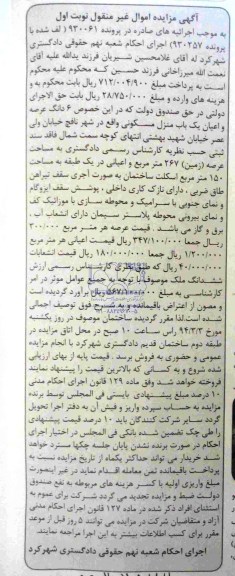 آگهی مزایده اموال غیر منقول نوبت اول
به موجب اجرائیه های صادره در پرونده ۹۳۰۰۶۱ ( لف شده با
پرونده ۹۳۰۲۵۷) اجرای احکام شعبه نهم حقوقی دادگستری
شهرکرد له آقای غلامحسین شبیریان فرزند یدالله علیه آقای
نعمت الله میرزاخانی فرزند حسین که محکوم علیه محکوم
است به پرداخت مبلغ ۷۱۲/۰۰۴/۹۰۰ ریال بابت محکوم به و
هزینه های وارده و مبلغ ۲۸/۷۵۰/۰۰۰ ریال بابت حق الاجرای
دولتی در حق صندوق دولت که در این خصوص ۶ دانگ عرصه
و اعیان یک باب منزل مسکونی واقع در شهر نافچ خیابان ولی
عصر خیابان شهید بهشتی انتهای کوچه سمت شمال فاقد سند
ثبتی حسب نظریه کارشناس رسمی دادگستری به مساحت
عرصه (زمین) ۲۶۷ متر مربع و اعیانی در یک طبقه به مساحت
۱۵۰ متر مربع اسکلت ساختمان به صورت آجری سقف تیرآهن
طاق ضربی . دارای نازک کاری داخلی . پوشش سقف ایزوگام
و نمای جنوبی با سرامیک و محوطه سازی با موزائیک کف
و نمای بیرونی محوطه پلاستر سیمان دارای انشعاب آب .
برق و گاز می باشد . قیمت عرصه هر متر مربع ۳۰۰/۰۰۰
ریال جمعا ۳۴۷/۱۰۰/۰۰۰ ریال قیمت اعیانی هر متر مربع
۱/۲۰۰/۰۰۰ ریال جمعا ۱۸۰/۰۰۰/۰۰۰ ریال قیمت انشعابات
۴۰/۰۰۰/۰۰۰ ریال که طبق نظری کارشناس رسمی ارزش
ششدانگ ملک موصوف با توجه به جمیع عوامل موثر در امر
کارشناسی به مبلغ ریال برآورد گردیده است
و مصون از اعتراض باقیمانده و به شرح فوق توصیف اجمالی
شده است لذا مقرر گردیده ساختمان موصوف در روز یکشنبه
مورخ ۹۴/۳/۳ راس ساعت ۱۰ صبح در محل اتاق مزایده در
طبقه دوم ساختمان قدیم دادگستری شهرکرد با انجام مزایده
عمومی و حضوری به فروش برسد . قیمت پایه از بهای ارزیابی
شده شروع و به کسانی که بالاترین قیمت را پیشنهاد نمایند
فروخته خواهد شد وفق ماده ۱۲۹ قانون اجرای احکام مدنی
۱۰ درصد مبلغ پیشنهادی بایستی فی المجلس توسط برنده
مزایده به حساب سپرده واریز و فیش آن به دفتر اجرا تحویل
گردد سایر شرکت کنندگان باید ۱۰ درصد قیمت پیشنهادی
را طی چک تضمین شده بانکی فی المجلس در اختیار اجرای
احکام در صورت برنده نشدن پایان جلسه چکها مسترد خواهد
شد خریدار می تواند حداکثر یکماه از تاریخ مزایده نسبت به
پرداخت باقیمانده ثمن معامله اقدام نماید در غیر اینصورت
مبلغ واریزی اولیه با کسر هزینه های مربوطه به نفع صندوق
دولت ضبط و مزایده تجدید می گردد شرکت برای عموم به
استثنای افراد ذکر شده در ماده ۱۲۷ قانون اجرای احکام مدنی
آزاد و متقاضیان شرکت در مزایده می توانند ۵ روز قبل از موعد
مقرر برای کسب اطلاعات بیشتر به این اجرا مراجعه نمایند.
اجرای احکام شعبه نهم حقوقی دادگستری شهرکرد